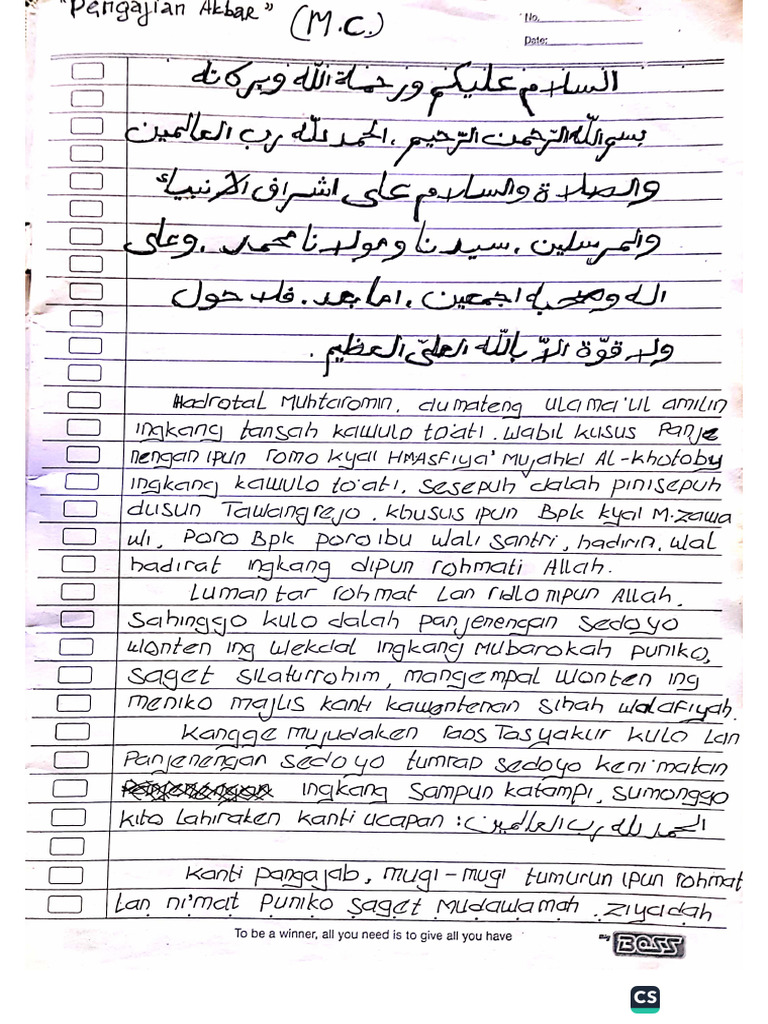 "Pengajian Akbar" (M.C.)
No.
Date:
السلام عليكم ورحمة الله وبركاته
بسم الله الرّحمن الرّحيم . الحمد لله رب العالمين
والصلاة والسلام على اشراف الانبياء
والمرسلين . سيدنا ومولانا محمد . وعلى
اله وصحبه اجمعين . اما بعد . فلا حول
ولا قوّة الاّ بالله العليّ العظيم .
Hadrotal Muhtaromin. dumateng ulama'ul amilin
ingkang tansah kawulo to'ati. wabil kusus Panje
nengan ipun romo kyai HMASFiya' Mujahid Al-khotoby
ingkang kawulo to'ati. sesepuh dalah pinisepuh
dusun Tawangrejo. khusus ipun Bpk kyai M.zawa
wi, Poro Bpk poro ibu wali santri, hadirin. wal
hadirat ingkang dipun rohmati Allah.
Lumantar rohmat lan ridlo nipun Allah.
Sahinggo kulo dalah panjenengan sedoyo
wonten ing wekdal ingkang Mubarokah puniko,
saget silaturrohim, mangempal wonten ing
meniko majlis kanti kawontenan sihah walafiyah.
Kangge mujudaken raos Tasyakur kulo lan
Panjenengan sedoyo tumrap sedoyo keni'matan
ingkang sampun katampi, sumonggo
kito lahiraken kanti ucapan : الحمد لله رب العالمين
Kanti pangajab, mugi-mugi tumurun ipun rohmat
lan ni'mat puniko saget mudawamah. ziyadah
To be a winner, all you need is to give all you have
Big BOSS
CS